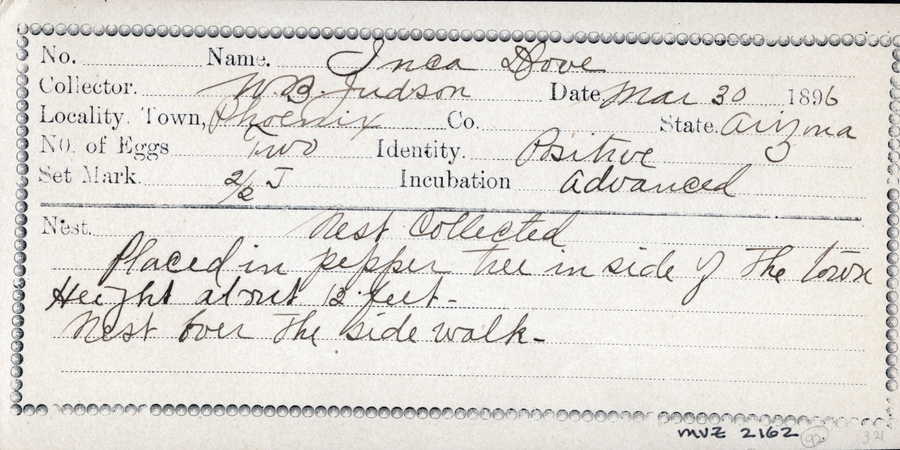 No. Name. Inca Dove
Collector. W. B. Judson Date Mar 30 1896
Locality. Town, Phoenix Co. State. Arizona
No. of Eggs Two Identity. Positive
Set Mark. 2/2 J Incubation Advanced
Nest. Nest Collected
Placed in pepper tree in side of the town
Height about 12 feet-
Nest over the side walk-
MVZ 2162 92 321